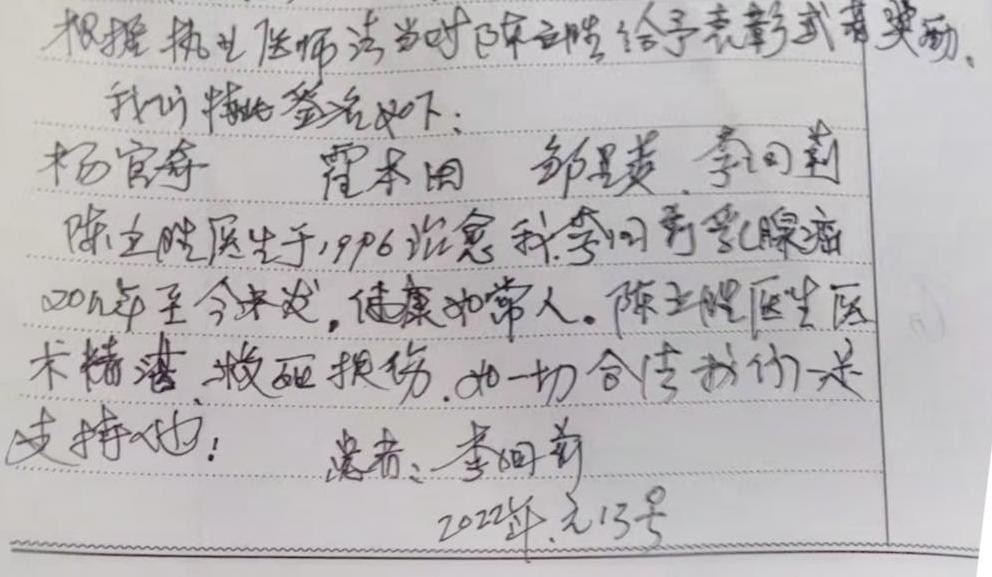 根据执业医师法当对陈立胜给予表彰或者奖励。
我们特此签名如下：
杨官奇 霍本田 邹星英、李回莉
陈立胜医生于1996治愈我李回莉乳腺癌
20几年至今未发，健康如常人。陈立胜医生医
术精湛、救死扶伤、如一切合法我们一定
支持他！
患者：李回莉
2022年元13号